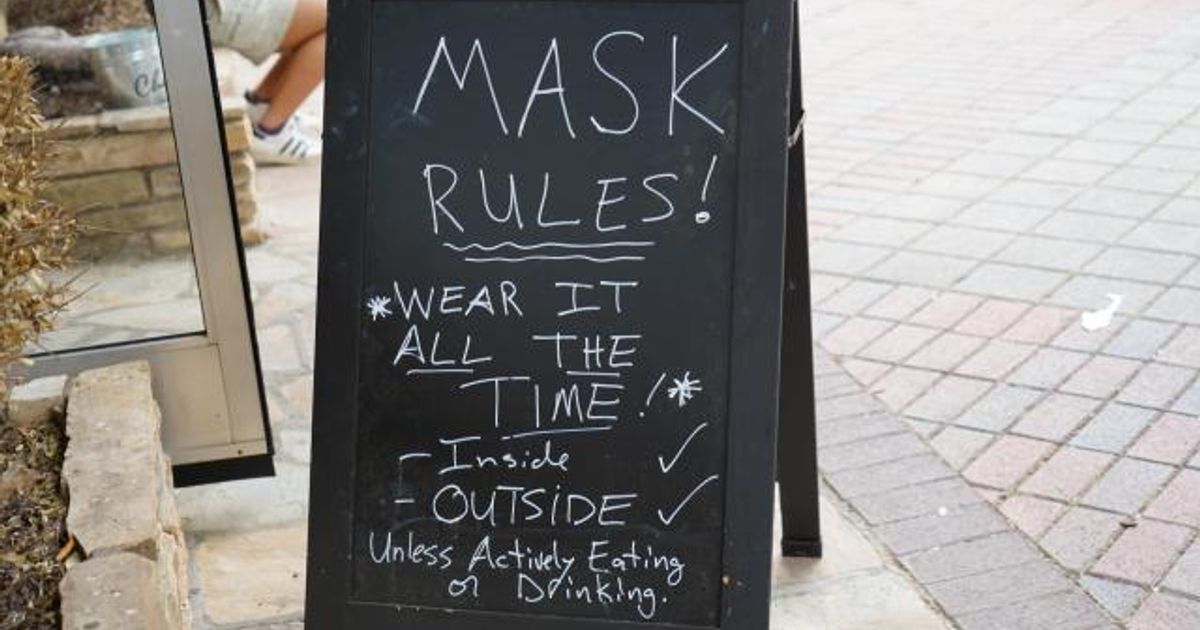 MASK
RULES!
*WEAR IT
ALL THE
TIME!*
- Inside ✓
- OUTSIDE ✓
Unless Actively Eating
or Drinking.